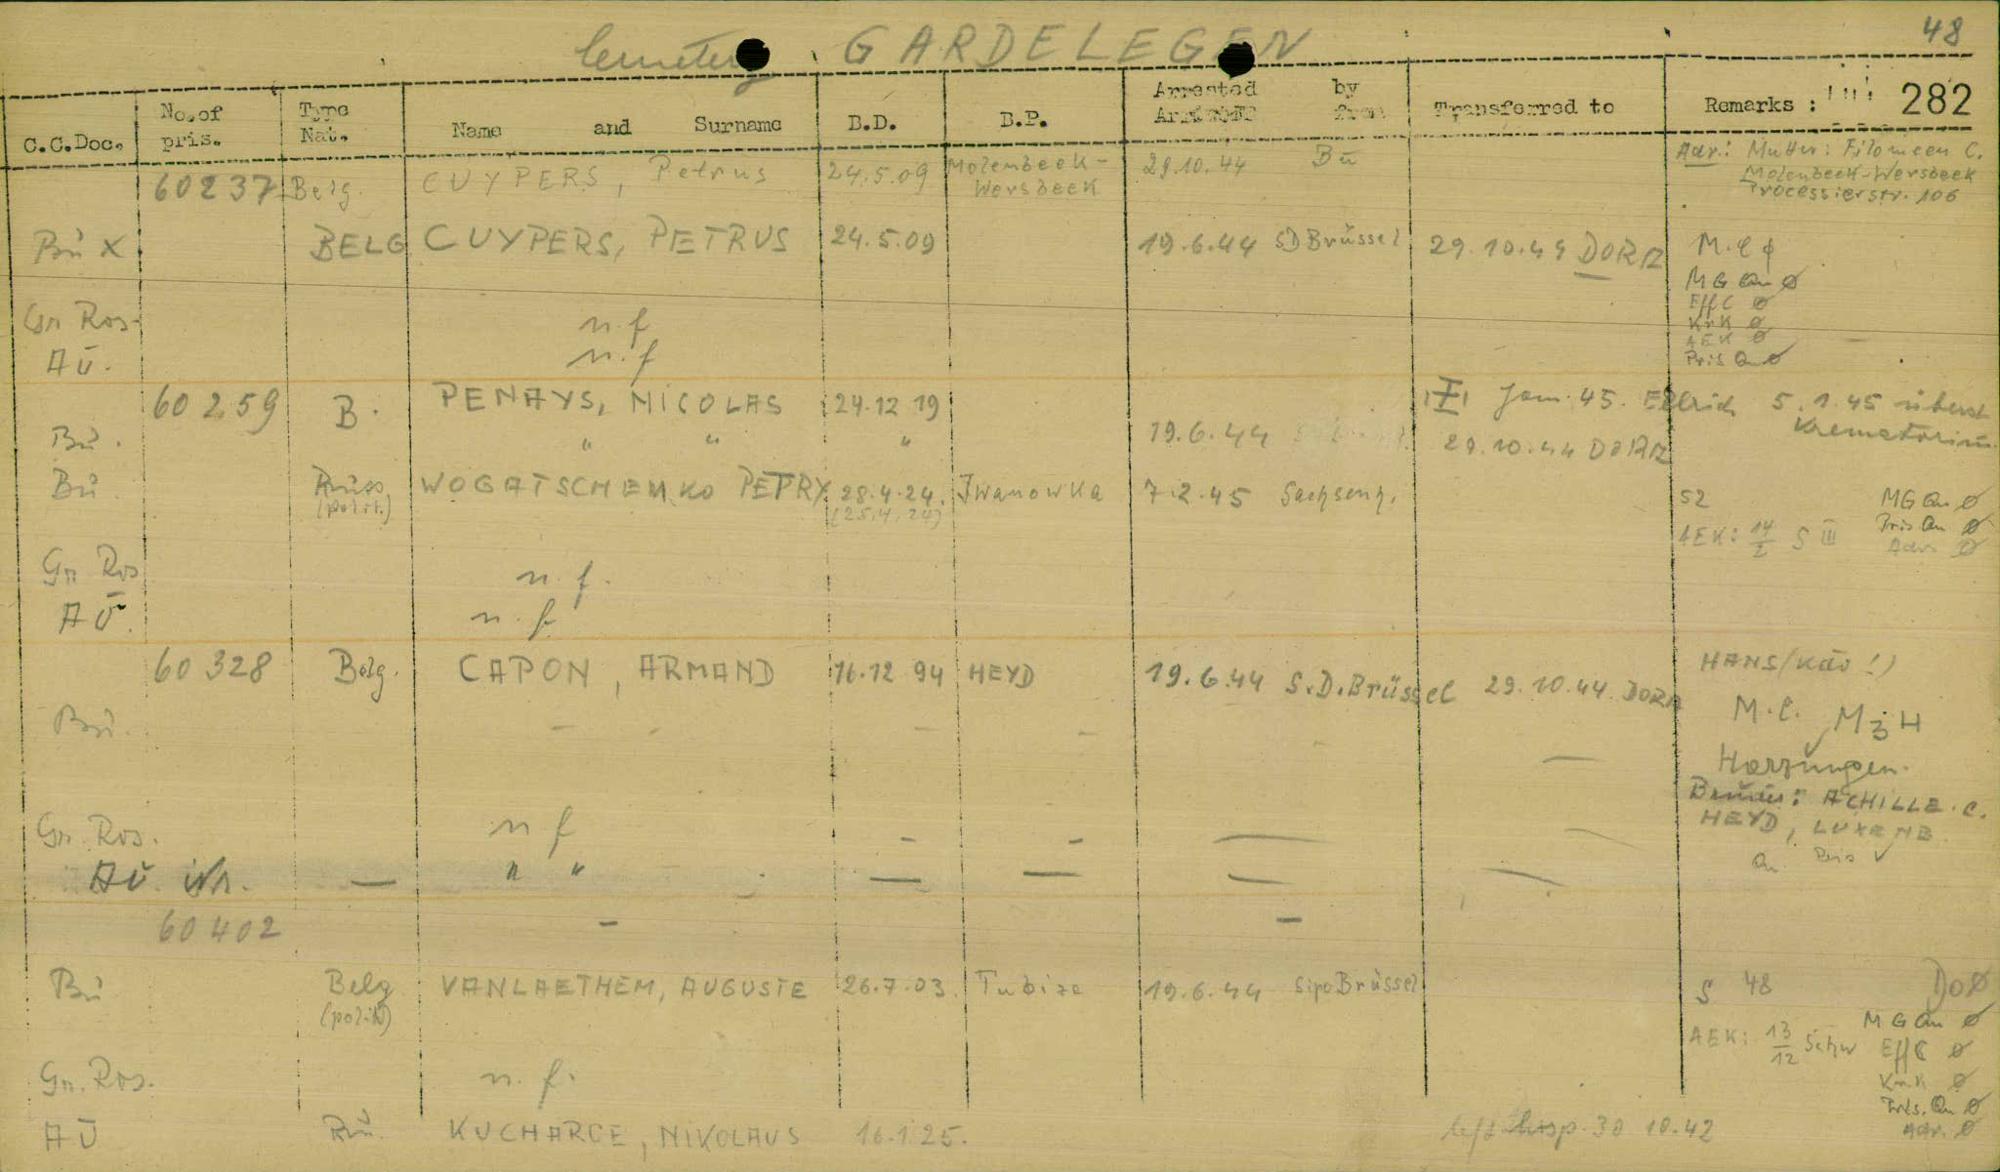 48
Cemetery GARDELEGEN
C.C.Doc. No.of pris. Type Nat. Name and Surname B.D. B.P. Arrested by from Transferred to Remarks : 282
60237 Belg. CUYPERS, Petrus 24.5.09 Molenbeek-Wersbeek 29.10.44 Bu Adr.: Mutter: Filomeen C.
Molenbeek-Wersbeek
Processierstr. 106
Bu X BELG CUYPERS, PETRUS 24.5.09 19.6.44 SD Brüssel 29.10.44 DORA M.C ϕ
MG Qu Ø
Eff C Ø
Gr Ros- n.f KrK Ø
AEK Ø
AU. n.f Pris Qu Ø
60259 B. PENAYS, NICOLAS 24.12 19 I Jan. 45. Ellrich 5.1.45 überst
Krematorium
Bu. " " " 19.6.44 29.10.44 DORA
Bu Russ (polit.) WOGATSCHEMKO PETRY 28.4.24. (25.4.24) Iwanowka 7.2.45 Sachsenh. S2 MG Qu Ø
Pris Qu Ø
AEK: 14/2 S III Adr Ø
Gr Ros n.f.
AU. n.f
60328 Belg. CAPON, ARMAND 16.12 94 HEYD 19.6.44 S.D.Brüssel 29.10.44. DORA HANS/
Bu. – – – – — M.C. M3H
Harzungen.
ACHILLE. C.
HEYD, LUXEMB
Gr. Ros. n f – – — — Qu Pris ✓
AU. — " " — — — —
60402 – –
Bu Belg (polit) VANLAETHEM, AUGUSTE 26.7.03. Tubize 19.6.44 Sipo Brüssel S 48 Do Ø
MG Qu Ø
AEK: 13/12 Schw Eff C Ø
Gr. Ros. n.f. KrK Ø
Pris. Qu Ø
AU Ru. KUCHARCE, NIKOLAUS 16.1 25. left hosp. 30 10.42 Adr. Ø